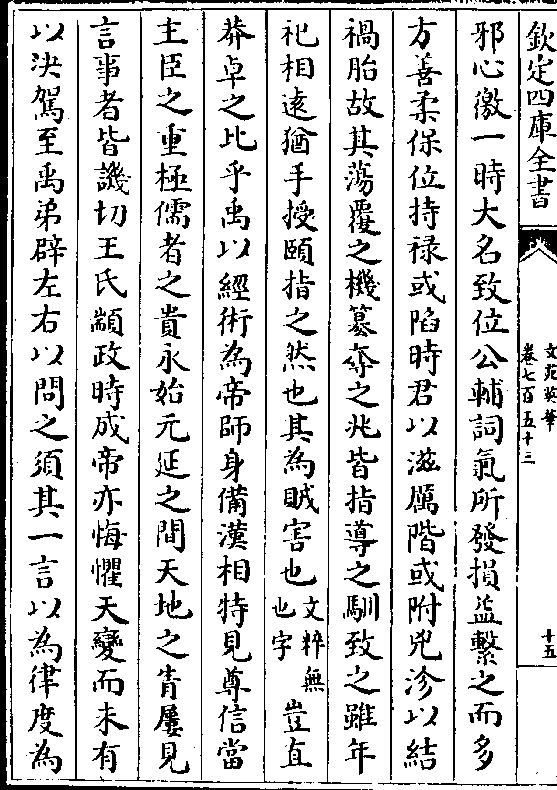 欽定四庫全書
文苑英華
卷七百五十三
十五
邪心徼一時大名致位公輔詞氣所發損益繫之而多
方善柔保位持祿或陷時君以滋厲階或附兇沴以結
禍胎故其蕩覆之機篡奪之兆皆指導之馴致之雖年
祀相遠猶手授頤指之然也其為賊害也文粹無也字豈直
莽卓之比乎禹以經術為帝師身備漢相特見尊信當
主臣之重極儒者之貴永始元延之間天地之眚屢見
言事者皆譏切王氏顓政時成帝亦悔懼天變而未有
以決駕至禹弟辟左右以問之須其一言以為律度為